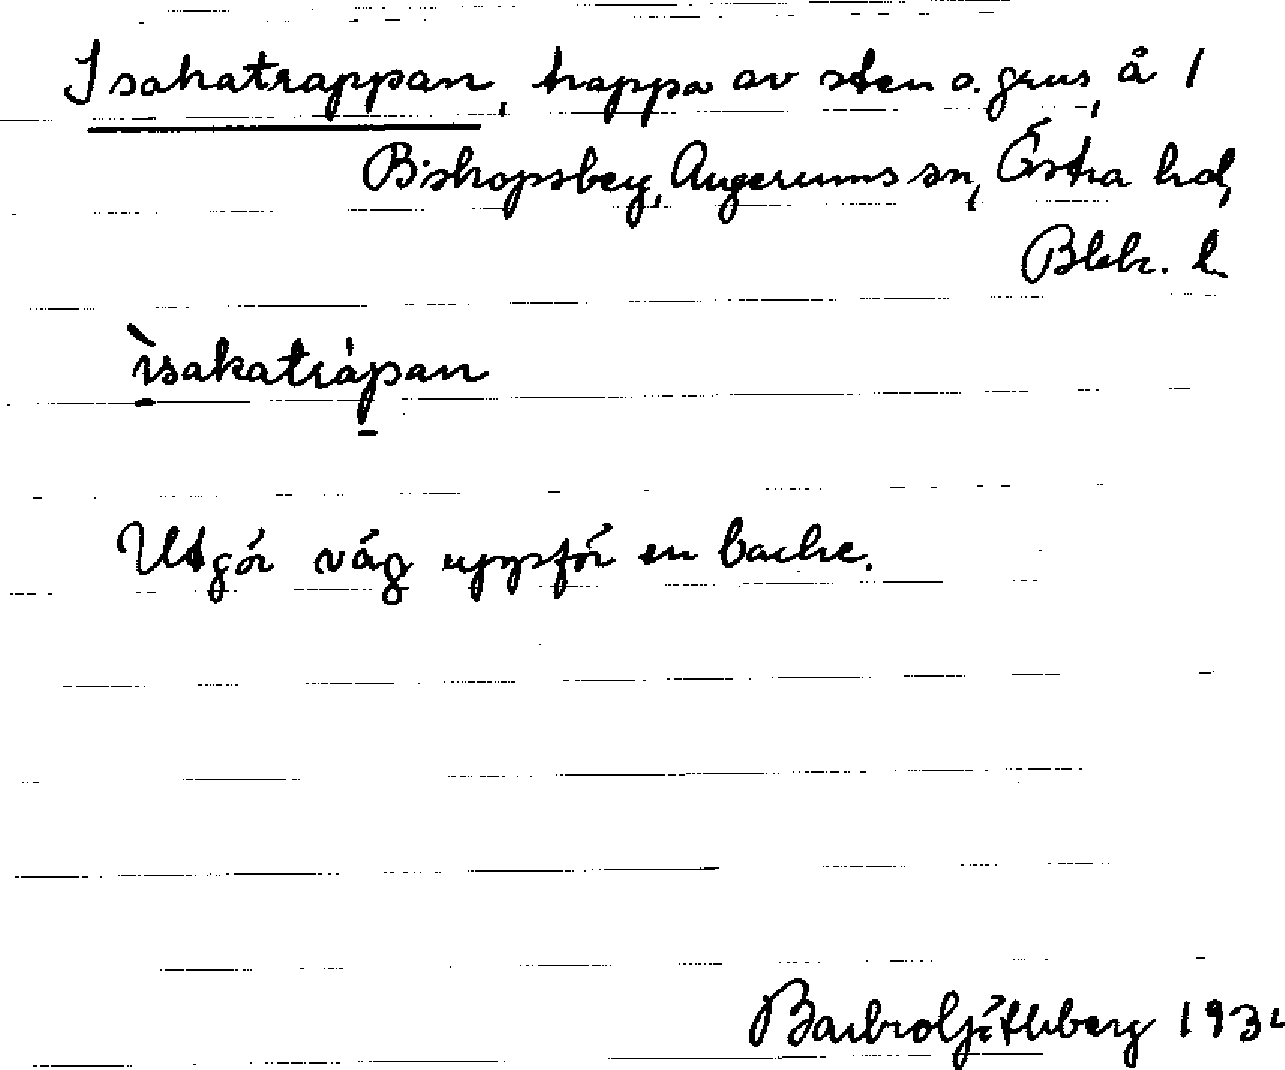 Isakatrappan, trappa av sten o. grus, å 1
Biskopsberg, Augerums sn, Östra hd,
Blek. l.
ìsakatrápan
Utgör väg uppför en backe.
Barbro 193